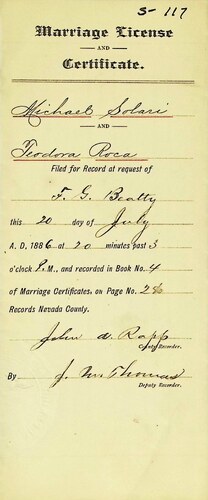 S-117
Marriage License
AND
Certificate.
Michael Solari
AND
Teodora Roca
Filed for Record at request of
F. G. Beatty
this 20 day of July
A. D. 1886 at 20 minutes past 3
o'clock P.M., and recorded in Book No. 4
of Marriage Certificates, on Page No. 26
Records Nevada County.
John A. Rapp
County Recorder.
By J. M. Thomas
Deputy Recorder.